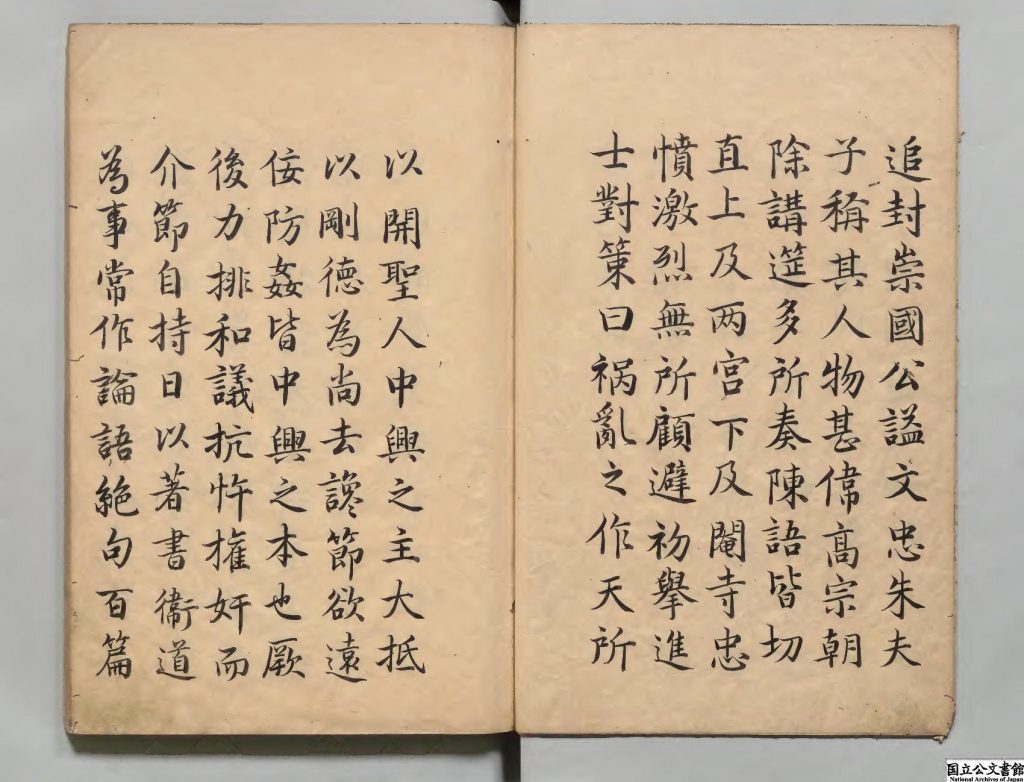 追封崇國公謚文忠朱夫
子稱其人物甚偉高宗朝
除講筵多所奏陳語皆切
直上及两宫下及閹寺忠
憤激烈無所顧避初舉進
士對策曰祸亂之作天所
以開聖人中興之主大抵
以剛德為尚去讒節欲遠
佞防姦皆中興之本也厥
後力排和議抗忤權奸而
介節自持日以著書衛道
為事常作論語絶句百篇
国立公文書館
National Archives of Japan